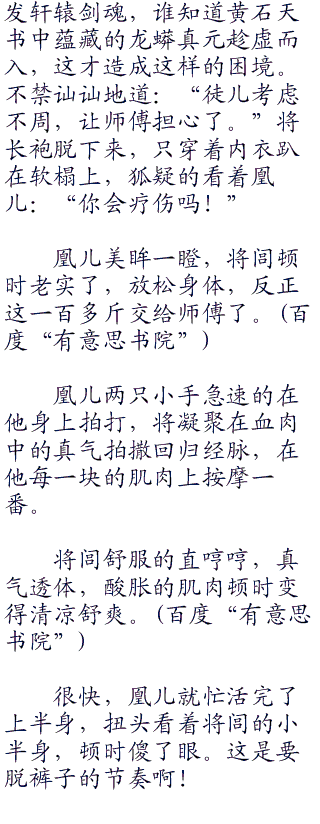 发轩辕剑魂，谁知道黄石天
书中蕴藏的龙蟒真元趁虚而
入，这才造成这样的困境。
不禁讪讪地道：“徒儿考虑
不周，让师傅担心了。”将
长袍脱下来，只穿着内衣趴
在软榻上，狐疑的看着凰
儿：“你会疗伤吗！”
凰儿美眸一瞪，将闾顿
时老实了，放松身体，反正
这一百多斤交给师傅了。(百
度“有意思书院”)
凰儿两只小手急速的在
他身上拍打，将凝聚在血肉
中的真气拍撒回归经脉，在
他每一块的肌肉上按摩一
番。
将闾舒服的直哼哼，真
气透体，酸胀的肌肉顿时变
得清凉舒爽。(百度“有意思
书院”)
很快，凰儿就忙活完了
上半身，扭头看着将闾的小
半身，顿时傻了眼。这是要
脱裤子的节奏啊！